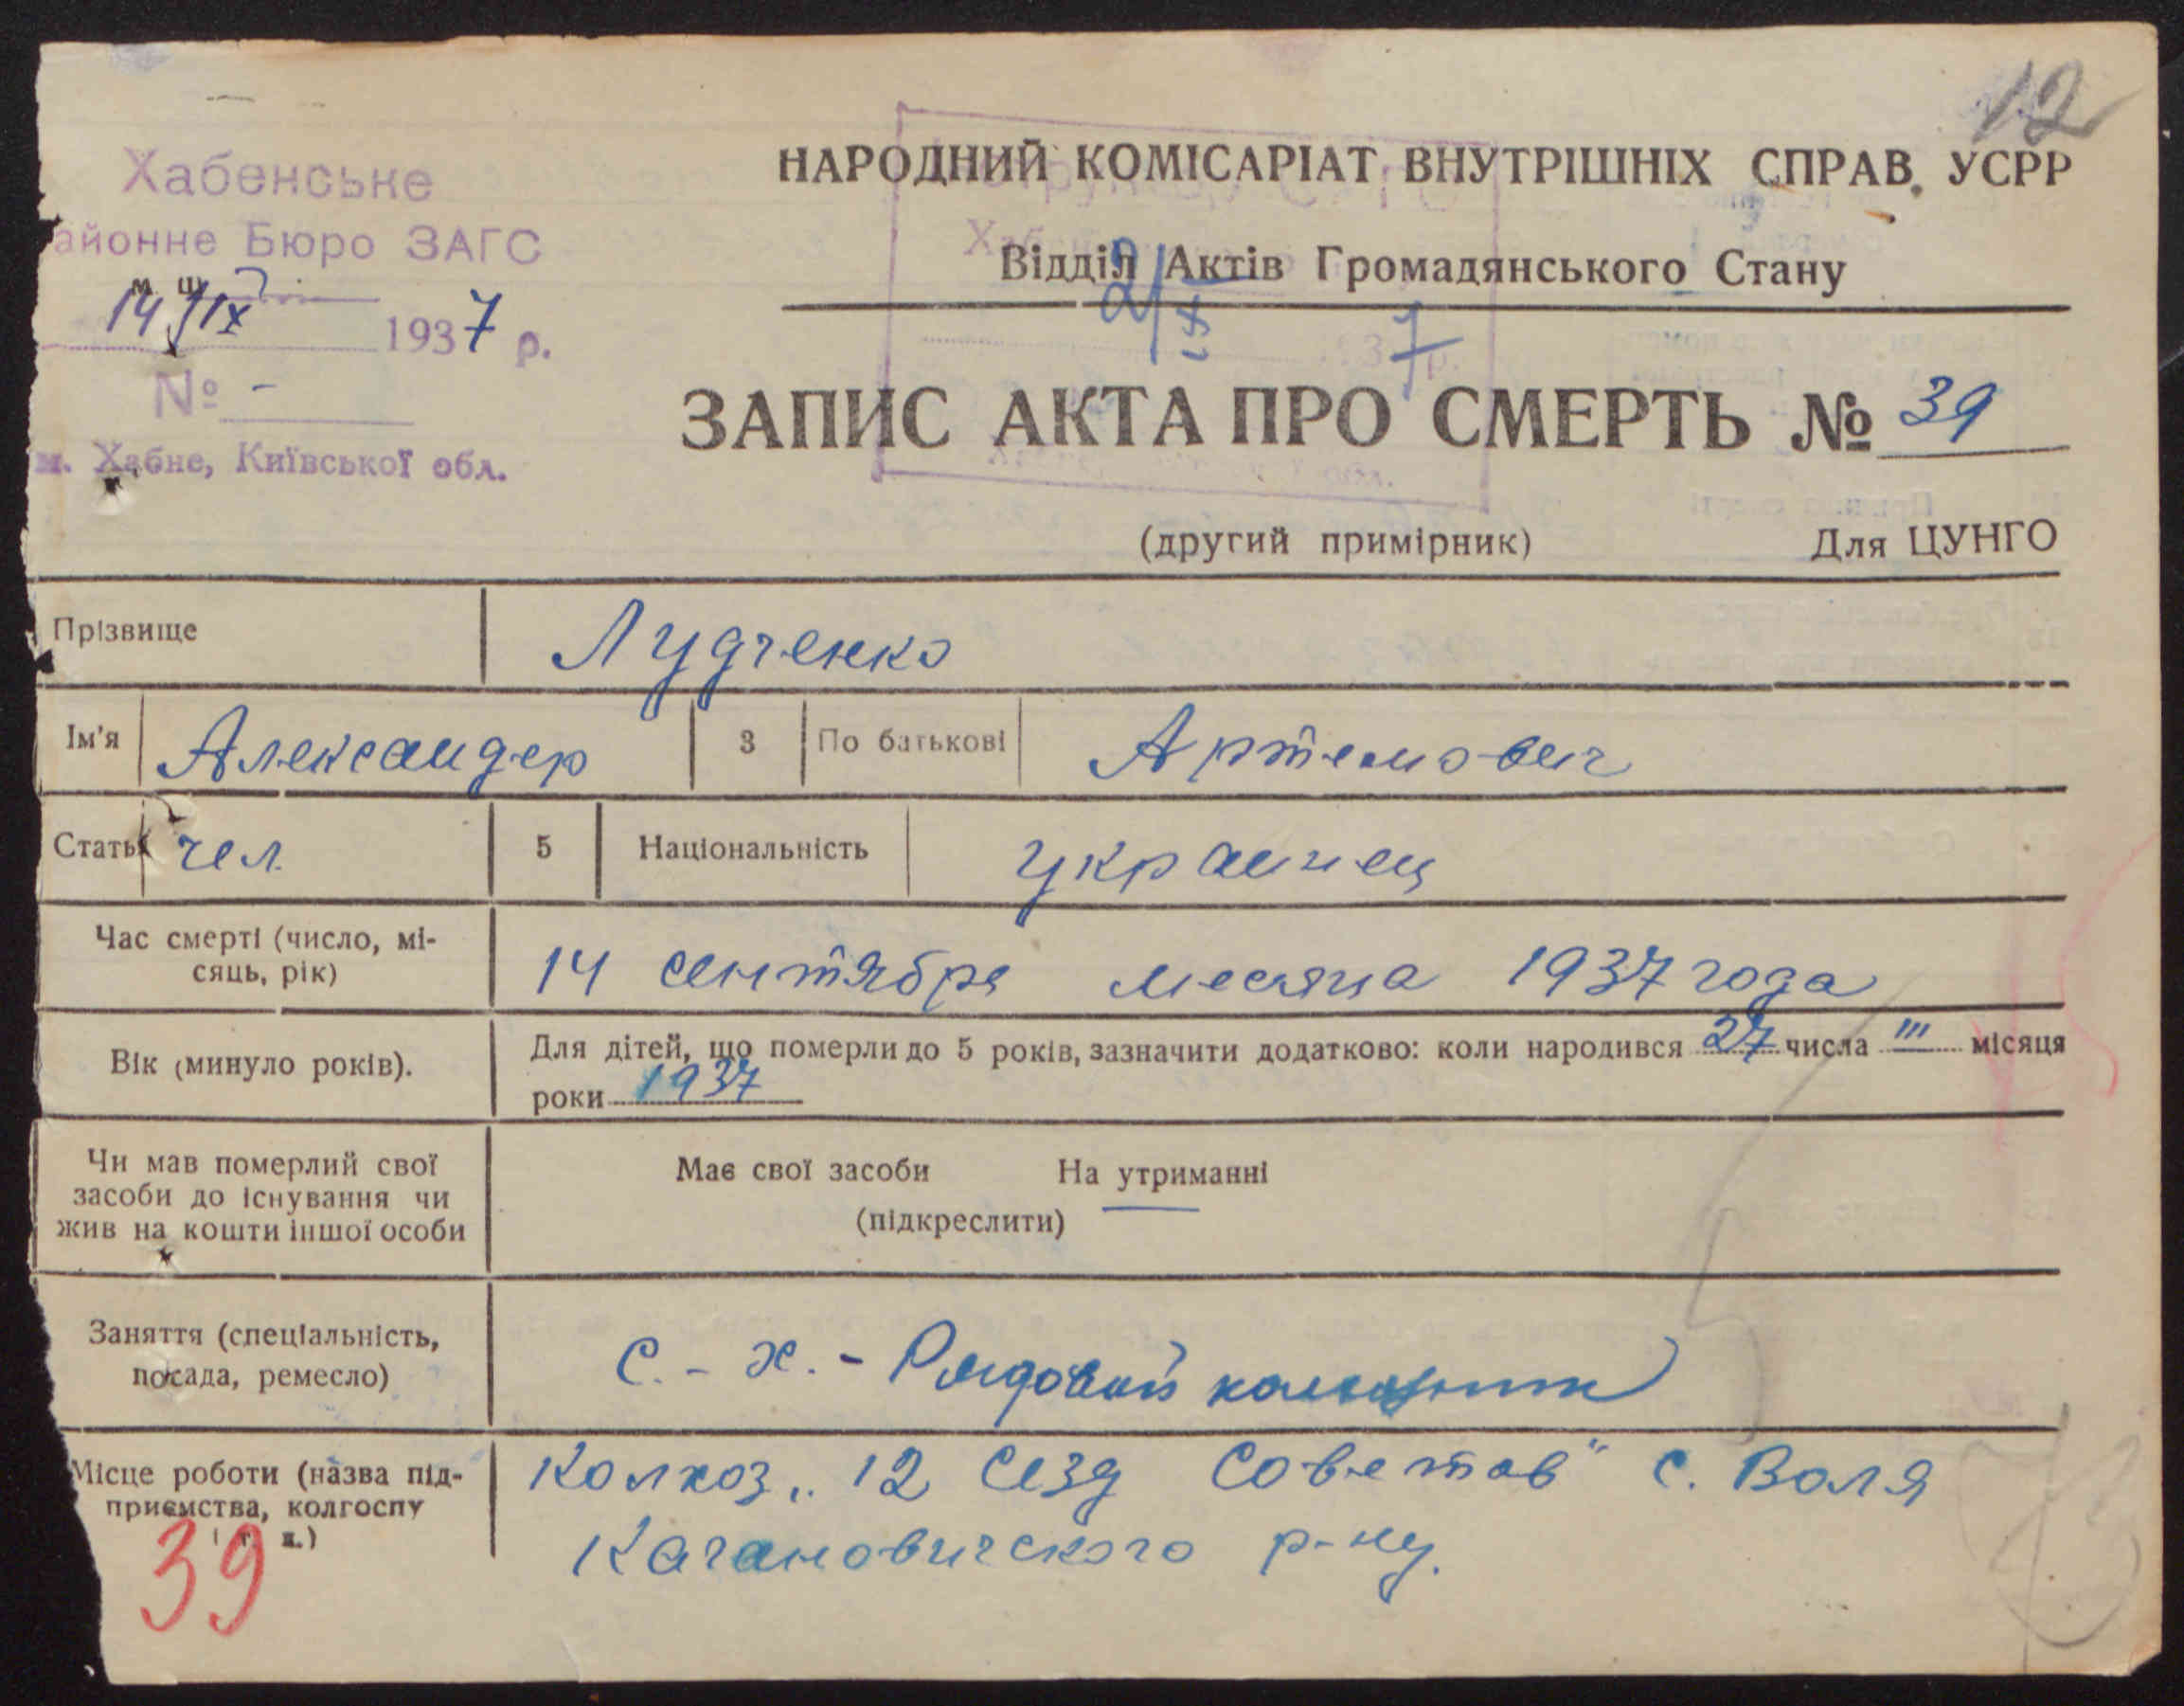 12
Хабенське
НАРОДНИЙ КОМІСАРІАТ ВНУТРІШНІХ СПРАВ УСРР
айонне Бюро ЗАГС
Відділ Актів Громадянського Стану
14/IX 1937 р.
2/IX 37 р.
№ -
ЗАПИС АКТА ПРО СМЕРТЬ № 39
м. Хабне, Київської обл.
(другий примірник) Для ЦУНГО
Прізвище Лудченко
Ім'я Александер 3 По батькові Артемович
Стать чел. 5 Національність украинец
Час смерті (число, мі-
сяць, рік)
14 сентября месяца 1937 года
Вік (минуло років).
Для дітей, що померли до 5 років, зазначити додатково: коли народився 27 числа III місяця
роки 1937
Чи мав померлий свої
засоби до існування чи
жив на кошти іншої особи
Має свої засоби На утриманні
(підкреслити)
Заняття (спеціальність,
посада, ремесло)
С.-х. - Рядовой
Місце роботи (назва під-
приємства, колгоспу
і т. і.)
Колхоз „12 Сезд Советов" с. Воля
Кагановичского р-ну.
39